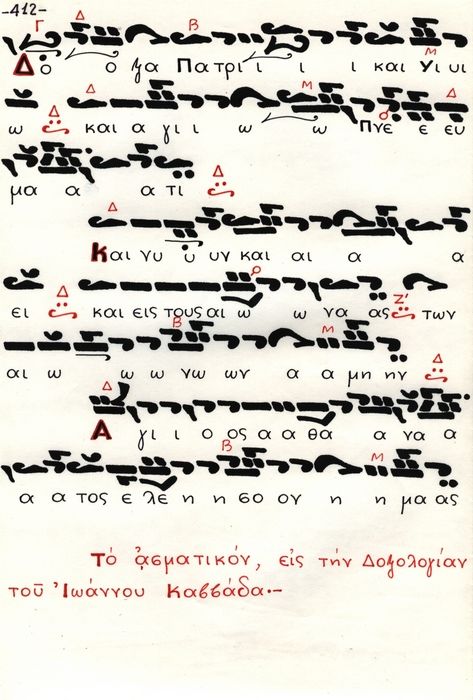 -412-
Δο ο ξα Πατρι ι ι ι και Υι υι
ω και α γι ι ω ω Πνε ε ευ
μα α α τι
Και νυ υ υν και αι α α
ει και εις τους αι ω ω να ας των
αι ω ω ω νω ων α α μη ην
Α γι ι ο ος α α θα α να α
α α τος ε λε η η σο ον η η μα ας
Τὸ ᾀσματικόν, εἰς τὴν Δοξολογίαν
τοῦ Ἰωάννου Καββάδα.-